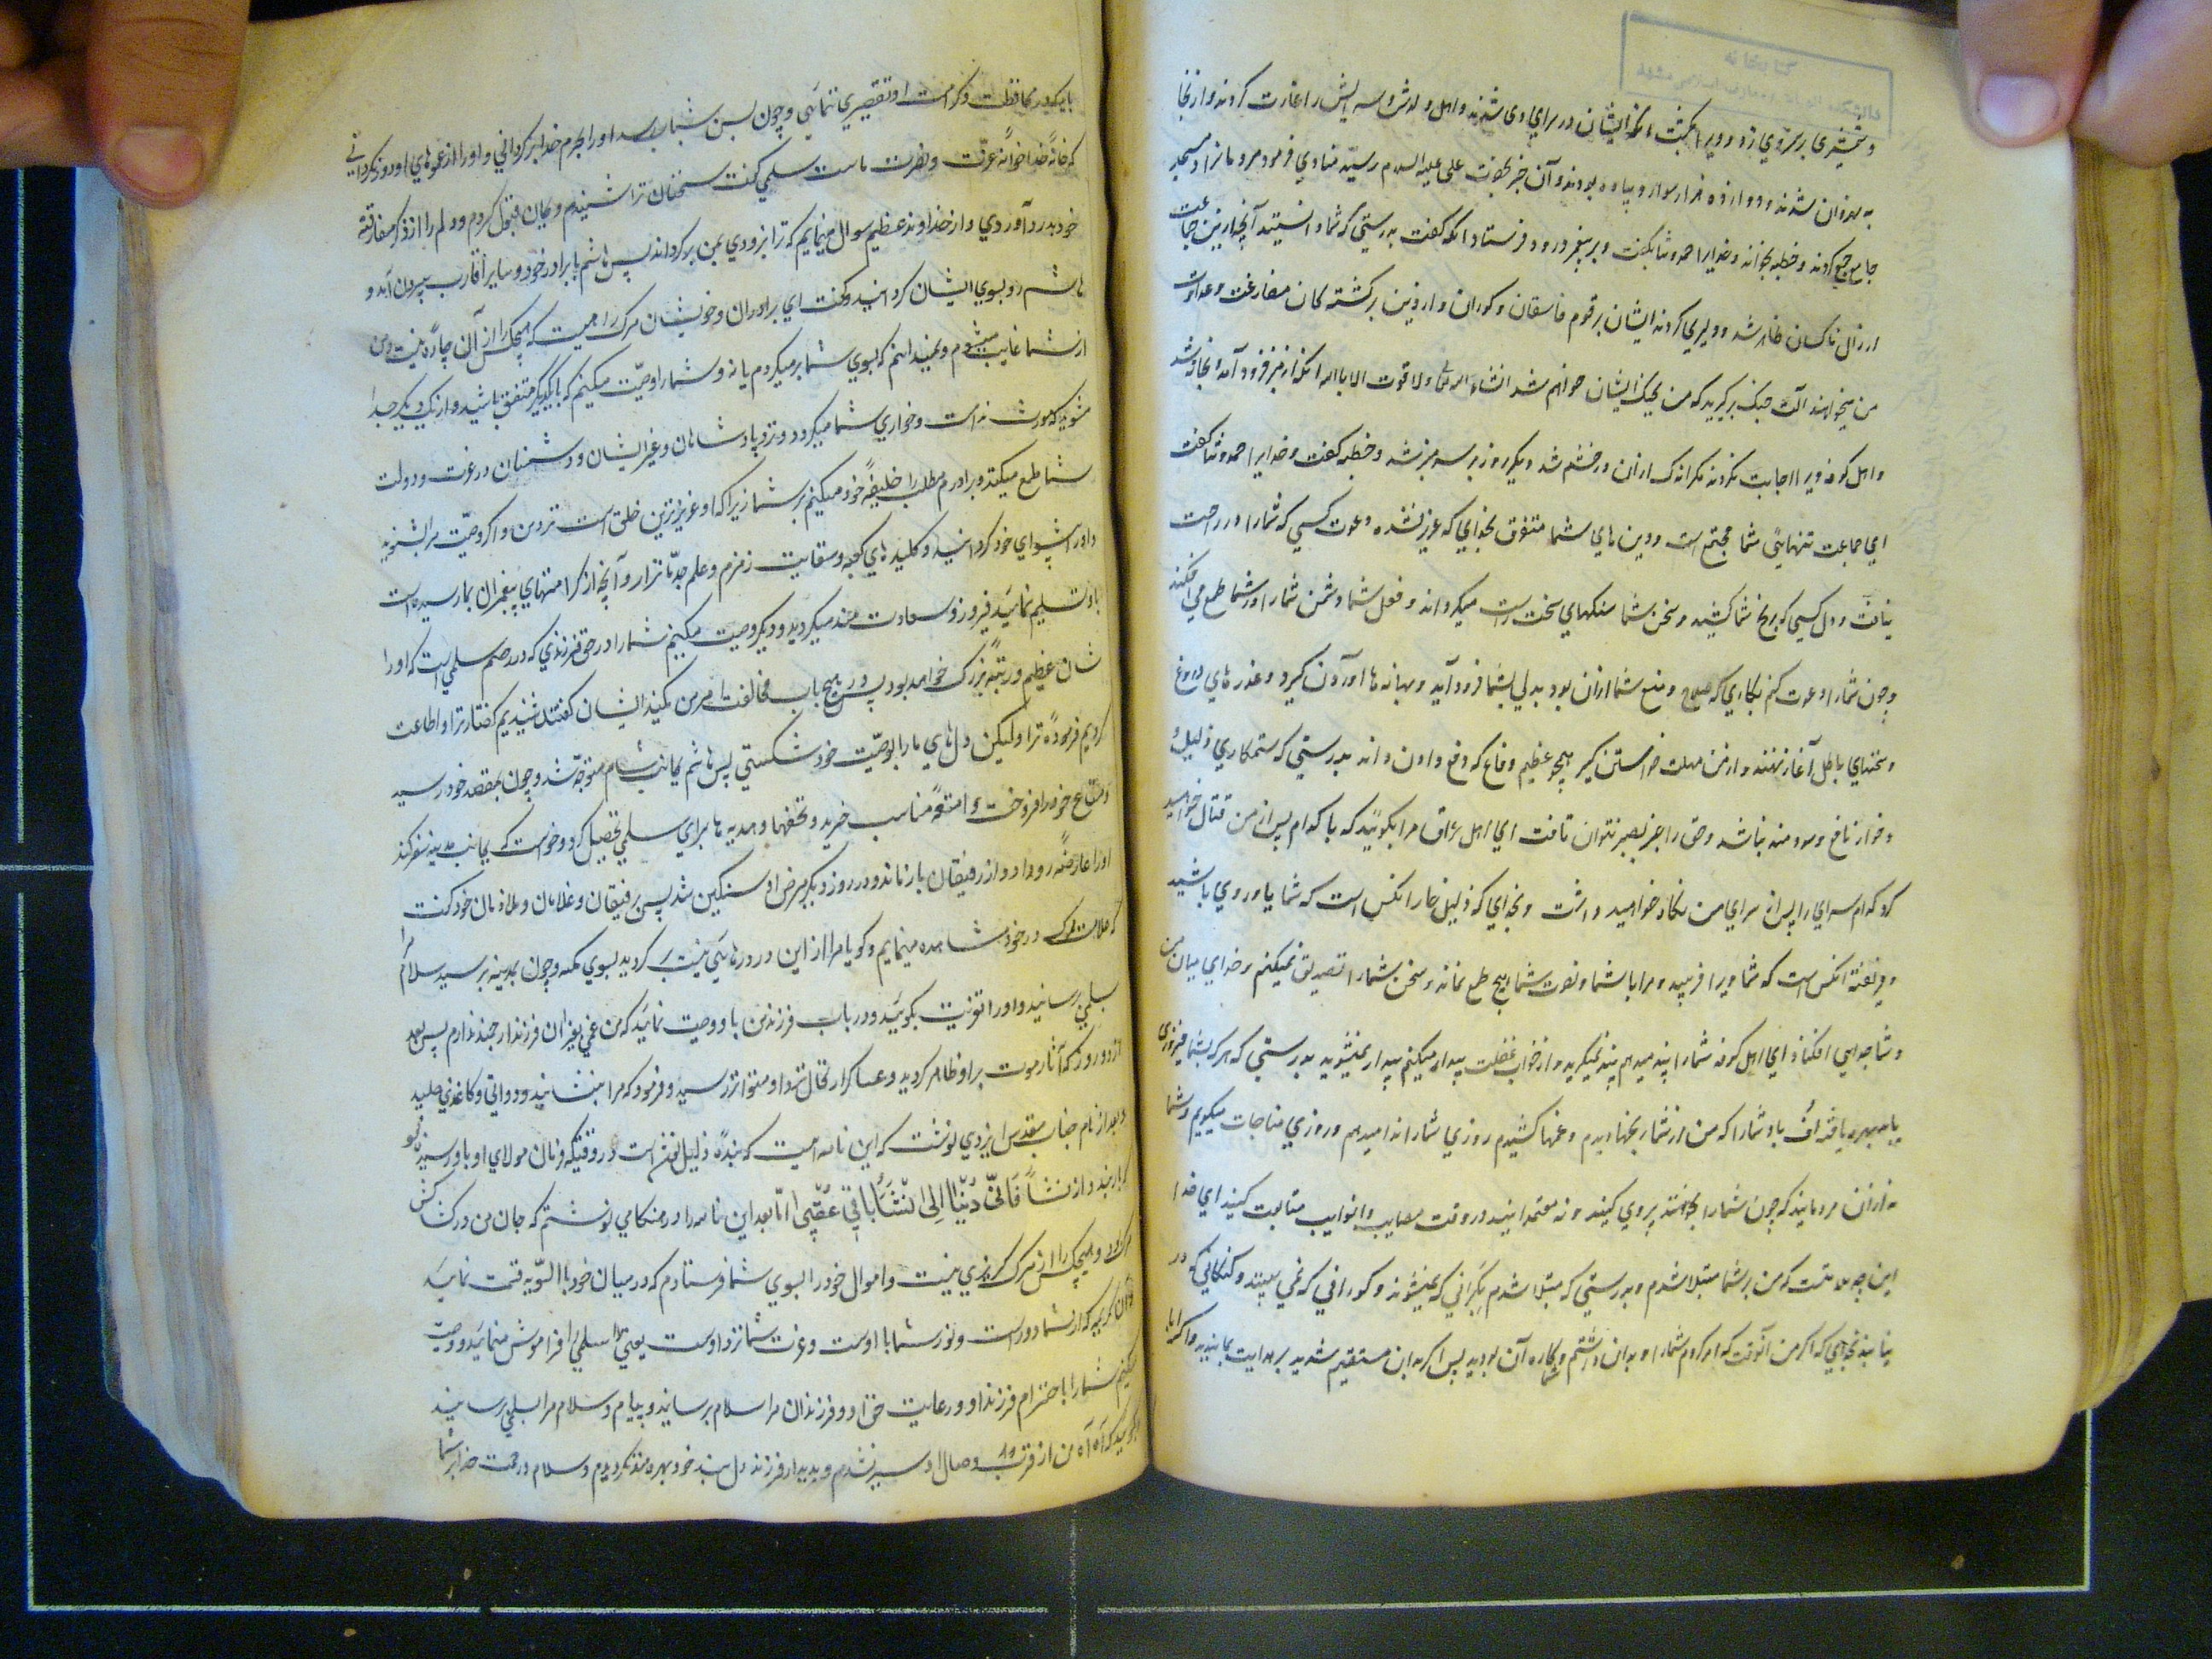 و شمشیری بر سر وی زد و ویرا بکشت انکه ایشان در سرای وی شدند و اهل و لدش را غارت کردند و از نجا
به نهروان شدند و دوازده هزار سوار و پیاده بودند و آن خبر بحضرت علی علیه السلام رسید منادی فرمود مردمانرا در مسجد
جامع جمع کردند و خطبه بخواند و خدایرا حمد و ثنا بگفت و بر پیغمبر درود فرستاد انکه گفت بدرستی که شما دانستید آنچه ازین جماعت
ارزال ناکسان ظاهر شد و دلیری کردند ایشان بر قوم فاسقان و کوران و از دین برکشته کان
من میخواهند آلت جنک برکیرید که من بجنک ایشان خواهم شد انشاء الله تعالی ولا قوت الا بالله انکه از منبر فرود آمد
و اهل کوفه ویرا اجابت نکردند مکر اندک از آن در خشم شد دیکر روز بر سر منبر شد و خطبه گفت و خدایرا حمد و ثنا گفت
ای جماعت تنهای شما مجتمع است و دین های شما متفق بخدای که عزیز نشد دعوت کسی که شما را در راحت
نیافت دل کسی که رنج شما کشید و سخن شما سنکهای سخت راست میکرداند و فعل شما دشمن شما را در شما طمع می افکند
و چون شما را دعوت کنم بکاری که صلاح و منع شما از آن بود بدلی بشما فرود آید و بهانه ها آوردن کیرد و عذرهای دروغ
و سخنهای باطل آغاز نهند و از من مهلت خواستن کیرد همچو عظیم وفاع که دفع دادن داند بدرستی که ستمکاری ذلیل
و خوار نافع و سودمند نباشد و حق را جز بصبر نتوان یافت ای اهل عراق مرا بکوئید که با کدام پس از من قتال خواهید
کرد کدام سرای را پس از سرای من نکاه خواهید داشت و بخدای که ذلیل خوار انکس است که شما یاور وی باشید
و فریفته انکس است که شما ویرا فریبید و مرا با شما و نصرت شما هیچ طمع نمانده و سخن شما را تصدیق نمیکنم و خدای میان من
و شما جدایی افکناد ای اهل کوفه شما را پند میدهم پند نمیکیرید و از خواب غفلت بیدار میکنم بیدار نمیشوید بدرستی که هر که بشما فیروزی
یابد بهره یافته اف باد شما را که من از شما رنجها دیدم و غمها کشیدم روزی شما را ندا میدهم و روزی مناجات میکویم و شما
نه از آن مردمانید که چون شما را بخوانند پیروی کنید و نه معتمدانید در وقت مصایب و نوایب متابعت کنید ای خدا
این چه بلاست که من بر شما مبتلا شدم و بدرستی که مبتلا شدم بکرانی که نمیشنوند و کورانی که نمی بینند و کنکانی که در
نیابند بخدای که اکر من آنوقت که امر کردم شما را و بدان داشتم و شما کاره آن بودید پس اکر بدان مستقیم شدید بر هدایت بماندید و اکر ابا
باید که در محافظت و کرامت او تقصیری ننمائی و چون بسن شباب رسد او را بحرم خدا برکردانی و او را از عموهای او دور نکردانی
که خانه خدا خوانه عزت و نصرت ماست سلمی گفت سخنان ترا شنیدم و بجان قبول کردم و دلم را از ذکر مفارقت
خود بدرد آوردی و از خداوند عظیم سوال مینمایم که ترا بزودی بمن برکرداند پس هاشم با برادر خود و سایر اقارب بیرون آمد و
هاشم رو بسوی ایشان کردانید و گفت ای برادران و خویشان مرک راهیست که هیچکس را از آن چاره نیست و من
از شما غایب میشوم و نمیدانم که بسوی شما برمیکردم یا نه و شما را وصیت میکنم که با یکدیکر متفق باشید و از یک دیکر جدا
مشوید که مورث مذلت و خواری شما میکردد و نزد پادشاهان و غیر ایشان و دشمنان در عزت و دولت
شما طمع میکنند و برادرم مطلب را خلیفه خود میکنم بر شما زیرا که او عزیزترین خلق است نزد من و اکر وصیت مرا بشنوید
و او را پیشوای خود کردانید و کلیدهای کعبه و سقایت زمزم و علم جد ما نزار و آنچه از کرامتهای پیغمبران بما رسیده است
باو تسلیم نمائید فیروز و سعادت مند میکردید و دیکر وصیت میکنم شما را در حق فرزندی که در رحم سلمی است که او را
شان عظیم و رتبه بزرک خواهد بود پس در هیچ باب مخالفت امر من مکنید ایشان گفتند شنیدیم گفتار ترا و اطاعت
کردیم فرموده ترا ولیکن دلهای ما را بوصیت خود شکستی پس هاشم بجانب شام متوجه شد و چون بمقصد خود رسید
و متاع خود را فروخت و امتعه مناسب خرید و تحفها و هدیه ها برای سلمی تحصیل کرد و خواست که بجانب مدینه سفر کند
او را عارضه رو داد و از رفیقان بازماند و در روز دیکر مرض او سنکین شد پس برفیقان و غلامان و ملازمان خود گفت
که علامت مرک در خود مشاهده مینمایم و کویا مرا از این درد رهائی نیست برکردید بسوی مکه و چون بمدینه برسید سلام مرا
بسلمی برسانید و او را تعزیت بکوئید و در باب فرزند من باو وصیت نمائید که من غمی بغیر آن فرزند ارجمند ندارم پس بعد
از دو روز که آثار موت بر او ظاهر کردید و عساکر ارتحال نزد او متواتر رسید فرمود که مرا بنشانید و دواتی و کاغذی طلبید
و بعد از نام جناب مقدس ایزدی نوشت که این نامه ایست که بنده ذلیل نوشته است در وقتیکه فرمان مولای او باو رسیده
اما بعد این نامه را در هنکامی نوشتم که جان من در کشاکش
مرک بود و هیچکس را از مرک کریزی نیست و اموال خود را بسوی شما فرستادم که در میان خود بالسویه قسمت نمائید
که از شما دور است و نور شما با اوست و عزت شما نزد اوست یعنی سلمی را فراموش منمائید و وصیت
میکنم شما را باحترام فرزند او و رعایت حق او و فرزندان مرا سلام برسانید و پیام و سلام مرا بسلمی برسانید
و بکوئید که آه آه من از قرب و وصال او سیر نشدم و بدیدار فرزند دلبند خود بهره مند نکردیدم و سلام و رحمت خدا بر شما